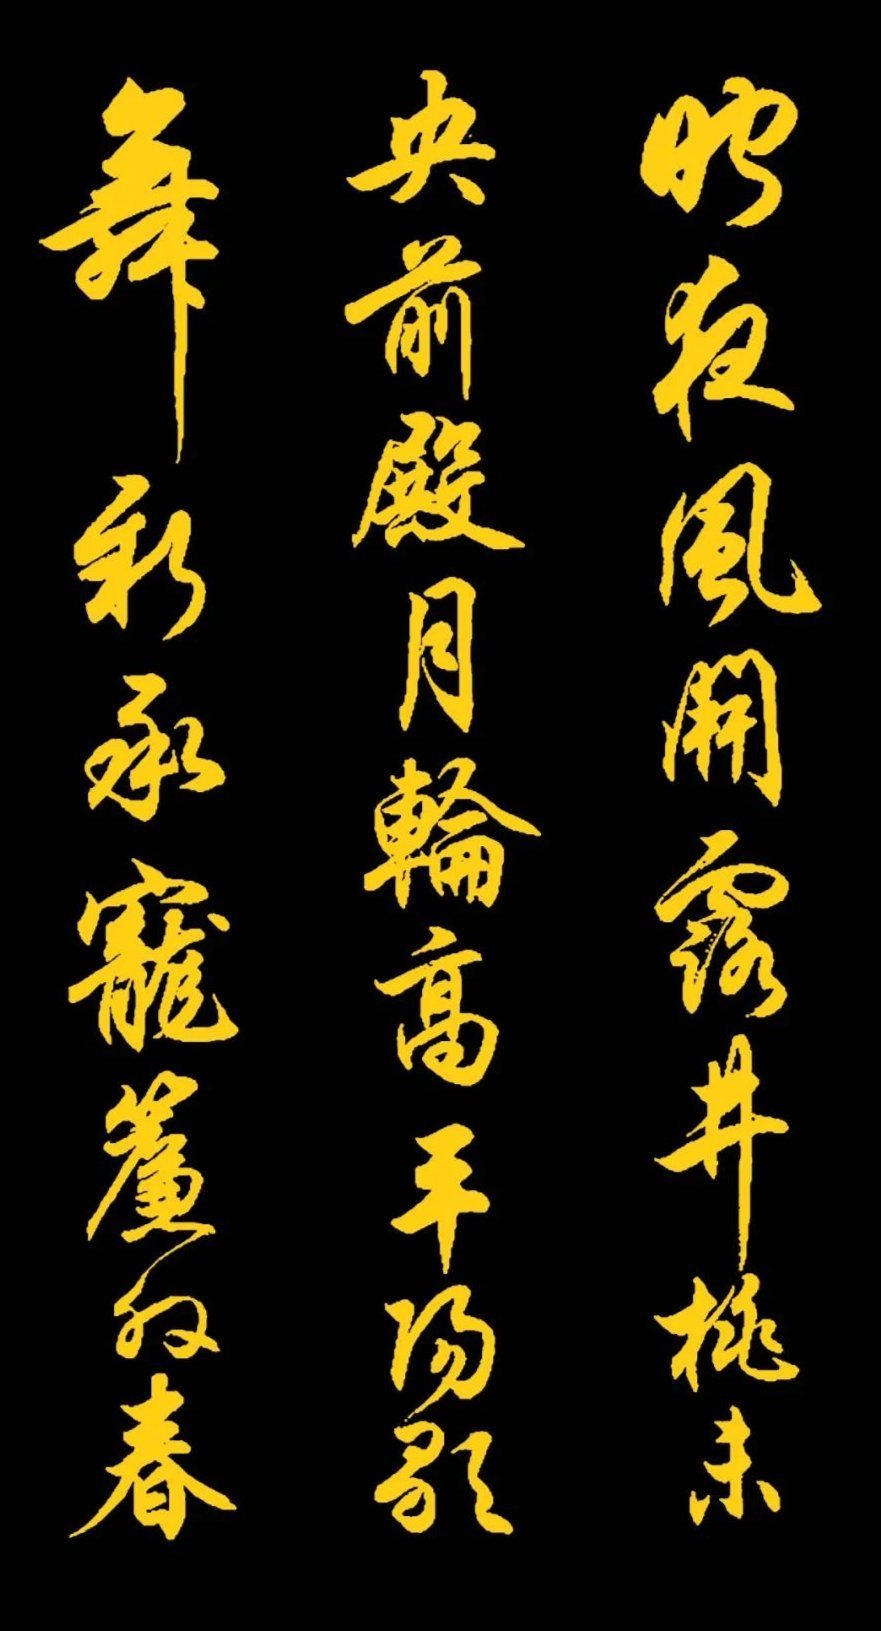 昨夜風開露井桃未
央前殿月輪高平陽歌
舞新承寵簾外春